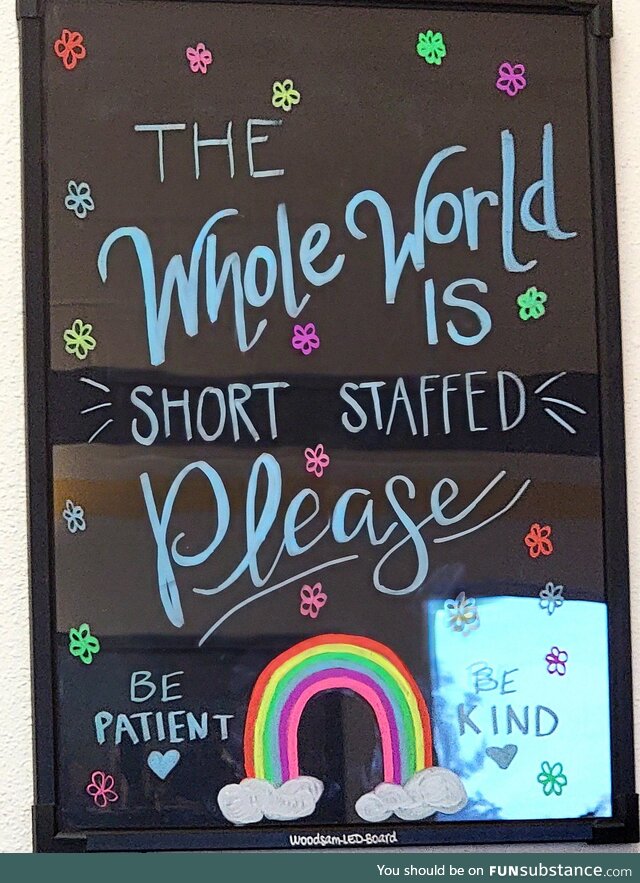 THE
Whole World
IS
SHORT STAFFED
Please
BE
PATIENT
BE
KIND
Woodsam-LED-Board
You should be on FUNsubstance.com